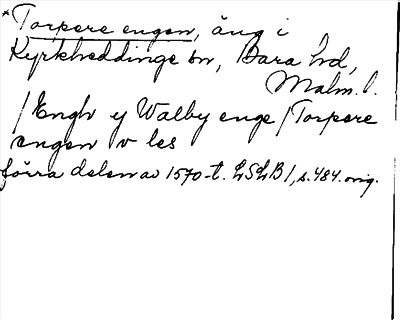 *Torpere engen, äng i
Kyrkheddinge sn, Bara hd,
Malm. l.
/Engh ej Walby enge / Torpere
engen v les
förra delen av 1570-t. LSLB 1, s. 484. orig.